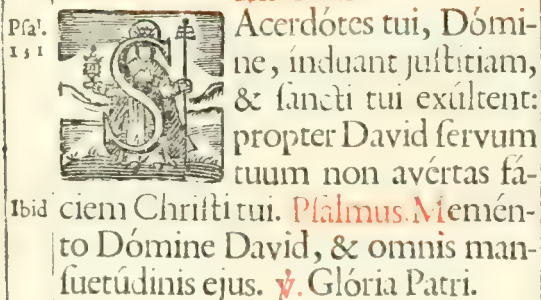 Psal. 131
SAcerdótes tui, Dómi-
ne, índuant justitiam,
& sancti tui exúltent:
propter David servum
tuum non avértas fá-
Ibid ciem Christi tui. Psalmus. Memén-
to Dómine David, & omnis man-
suetúdinis ejus. ℣. Glória Patri.